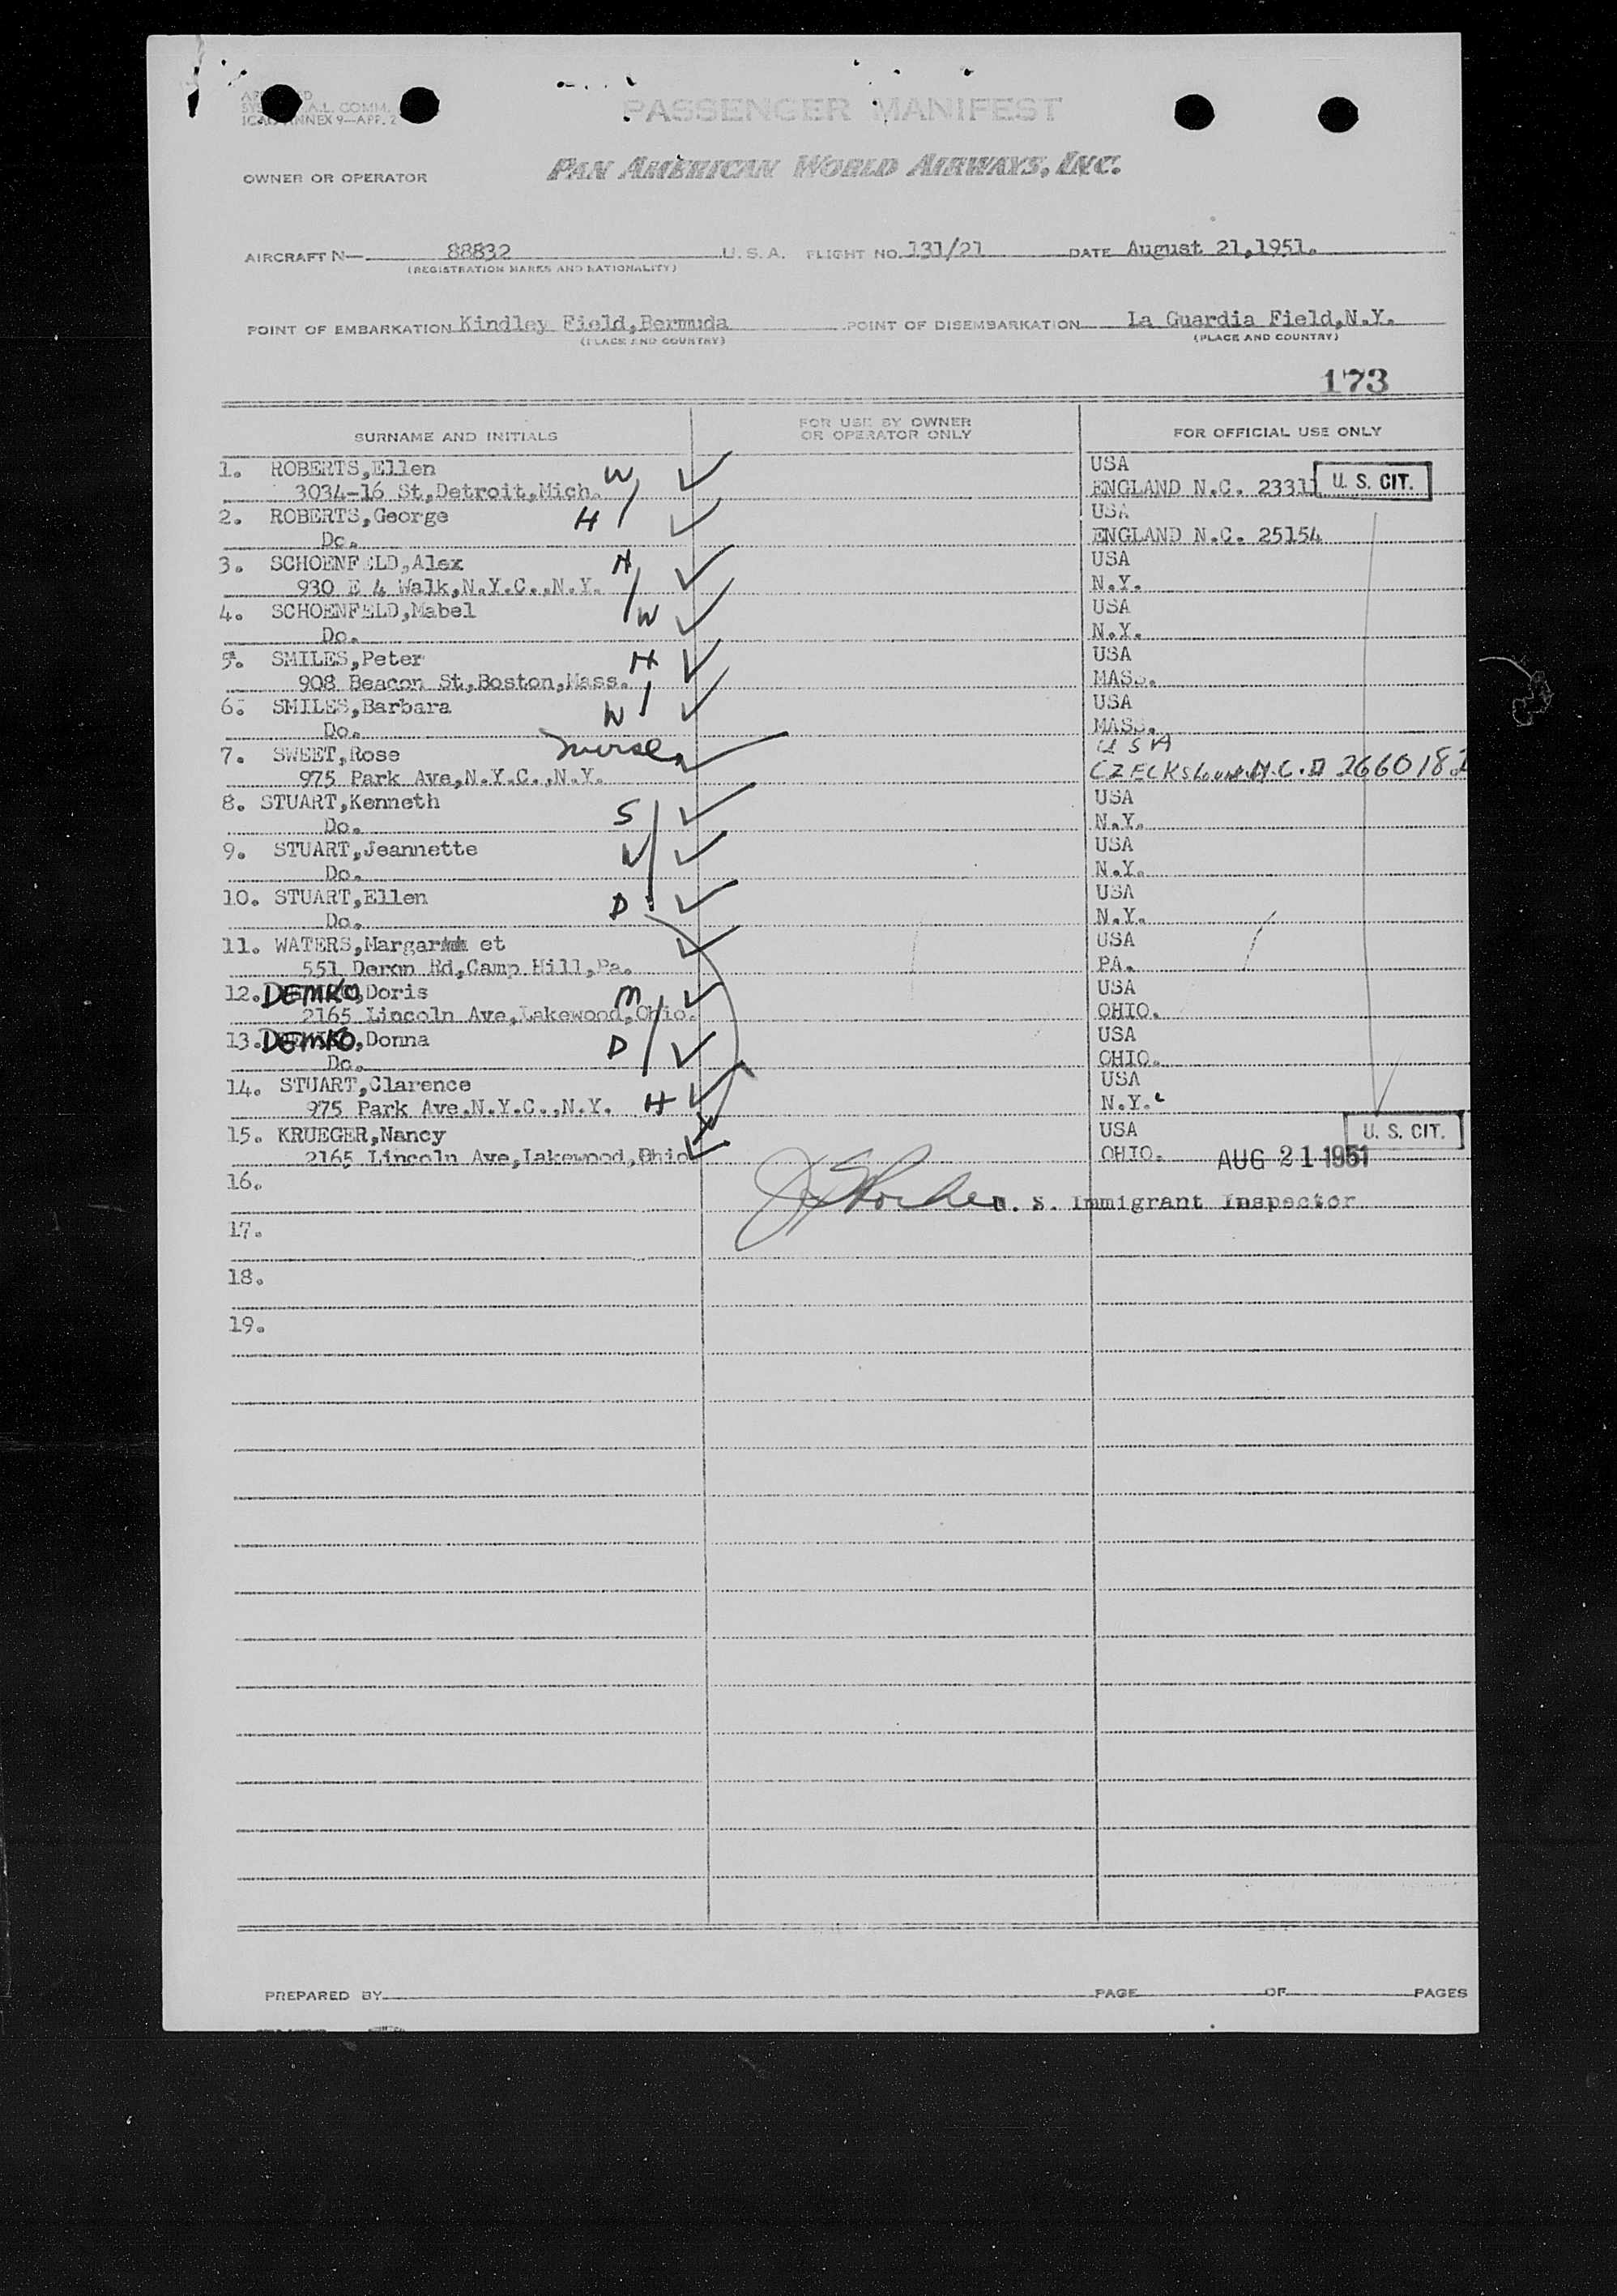 PASSENGER MANIFEST
ICAO ANNEX 9—APP. 2
OWNER OR OPERATOR PAN AMERICAN WORLD AIRWAYS, INC.
AIRCRAFT N— 88832 U. S. A. FLIGHT NO. 131/21 DATE August 21,1951.
(REGISTRATION MARKS AND NATIONALITY)
POINT OF EMBARKATION Kindley Field,Bermuda POINT OF DISEMBARKATION La Guardia Field,N.Y.
(PLACE AND COUNTRY) (PLACE AND COUNTRY)
173
SURNAME AND INITIALS FOR USE BY OWNER OR OPERATOR ONLY FOR OFFICIAL USE ONLY
1. ROBERTS,Ellen W USA
3034-16 St,Detroit,Mich. ENGLAND N.C. U. S. CIT.
2. ROBERTS,George H USA
Do. ENGLAND N.C. 25154
3. SCHOENFELD,Alex H USA
930 E 4 Walk,N.Y.C.,N.Y. N.Y.
4. SCHOENFELD,Mabel W USA
Do. N.Y.
5. SMILES,Peter H USA
908 Beacon St,Boston,Mass. MASS.
6. SMILES,Barbara W USA
Do. MASS.
7. SWEET,Rose nurse USA
975 Park Ave,N.Y.C.,N.Y.
8. STUART,Kenneth S USA
Do. N.Y.
9. STUART,Jeannette W USA
Do. N.Y.
10. STUART,Ellen D USA
Do. N.Y.
11. WATERS,Margar et USA
551 Deron Rd,Camp Hill,Pa. PA.
12. DEMKO,Doris M USA
2165 Lincoln Ave,Lakewood,Ohio. OHIO.
13. DEMKO,Donna D USA
Do. OHIO.
14. STUART,Clarence USA
975 Park Ave.N.Y.C.,N.Y. H N.Y.
15. KRUEGER,Nancy USA U. S. CIT.
2165 Lincoln Ave,Lakewood,Ohio. OHIO. AUG 21 1951
16.
U. S. Immigrant Inspector
17.
18.
19.
PREPARED BY PAGE OF PAGES